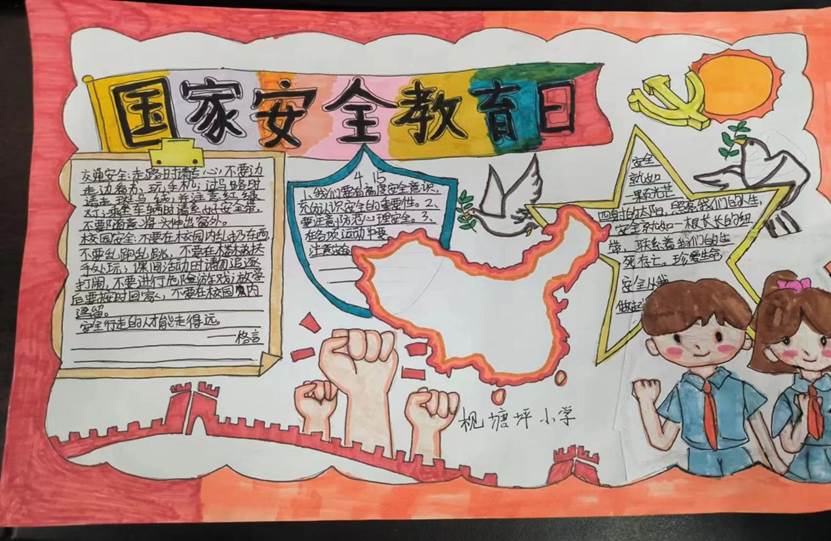 国家安全教育日
交通安全:走路时请写心,不要边
走边看书、玩手机,过马路时
请走斑马线,并注意红绿
灯,乘坐车辆时请系好安全带
不要随意将头伸出窗外。
校园安全:不要在校园内乱扔东西
不要乱跑乱跳,不要在楼梯扶
手处玩,课间活动时请勿追逐
打闹,不要进行危险游戏,放学
后要按时回家,不要在校园周内
逗留。
安全行走的人才能走得远。
——格言
4.15
1、我们要有高度安全意识,
充份认识安全的重要性。2、
要注意防范心理安全。3、
在各项运动中要
注意安全
安全
就如
一束光芒
四射的太阳,照亮我们的人生
安全就如一根长长的纽
带,联系着我们的生
死存亡。珍爱生命
安全从我
做起
枧塘坪小学